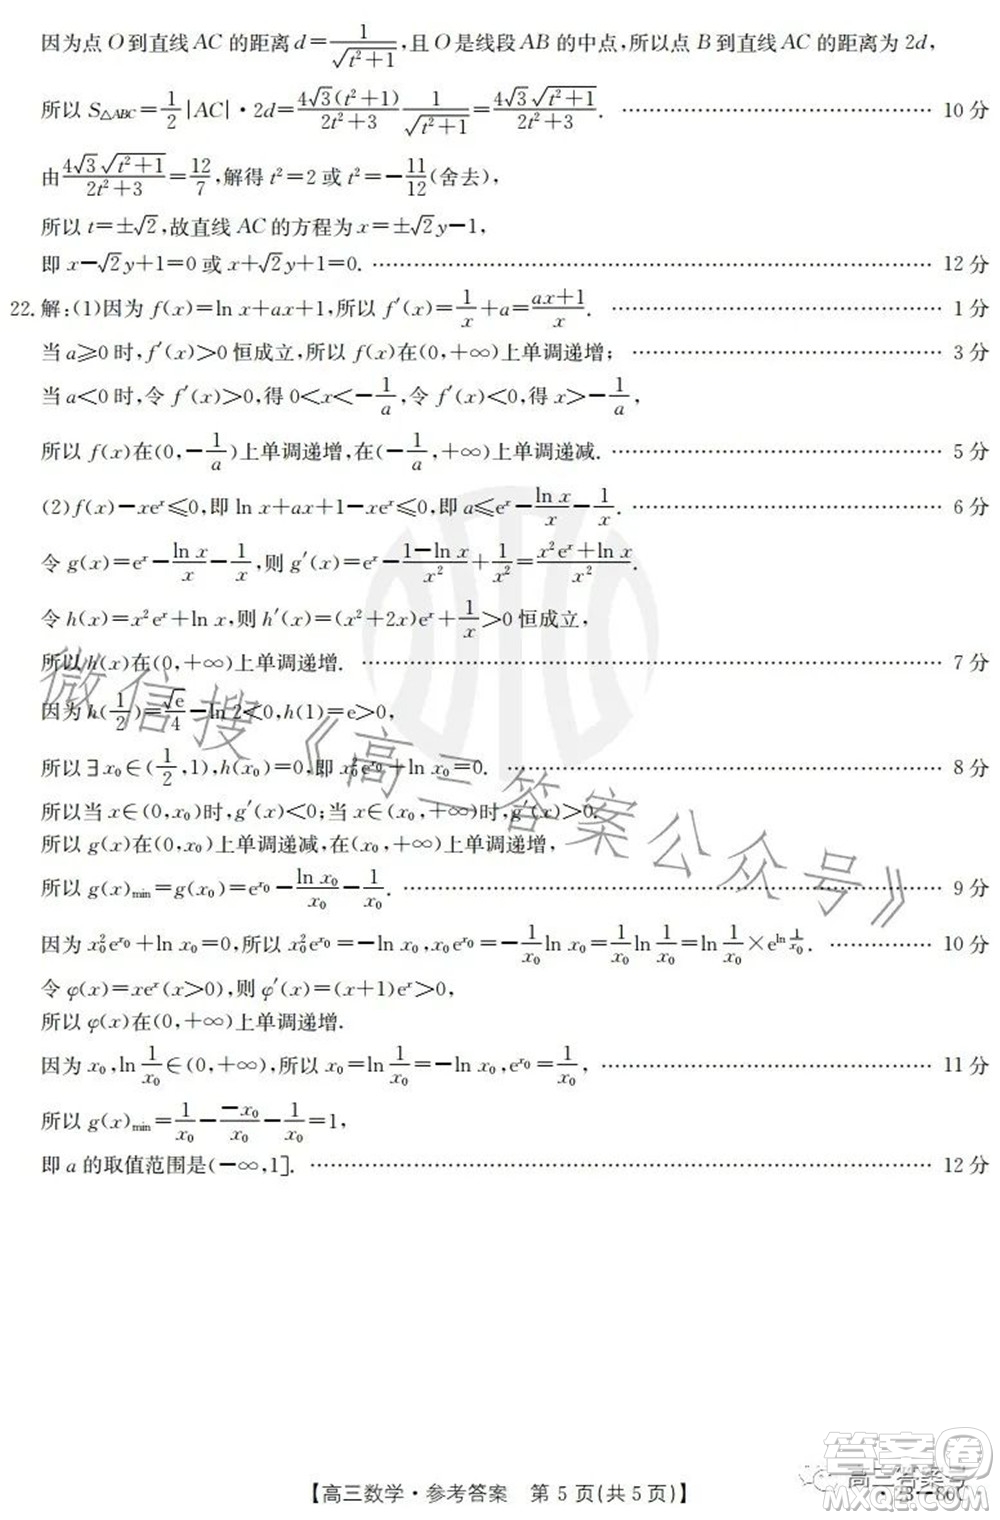 因为点 O 到直线 AC 的距离 d=1/√(t²+1),且 O 是线段 AB 的中点,所以点 B 到直线 AC 的距离为 2d,
所以 S△ABC=1/2|AC|·2d=4√3(t²+1)/(2t²+3) 1/√(t²+1)=4√3√(t²+1)/(2t²+3). …… 10 分
由4√3√(t²+1)/(2t²+3)=12/7,解得 t²=2 或 t²=-11/12(舍去),
所以 t=±√2,故直线 AC 的方程为 x=±√2y-1,
即 x-√2y+1=0 或 x+√2y+1=0. …… 12 分
22.解:(1)因为 f(x)=ln x+ax+1,所以 f′(x)=1/x+a=(ax+1)/x. …… 1 分
当 a≥0 时,f′(x)>0 恒成立,所以 f(x)在(0,+∞)上单调递增; …… 3 分
当 a<0 时,令 f′(x)>0,得 0<x<-1/a,令 f′(x)<0,得 x>-1/a,
所以 f(x)在(0,-1/a)上单调递增,在(-1/a,+∞)上单调递减. …… 5 分
(2)f(x)-xeˣ≤0,即 ln x+ax+1-xeˣ≤0,即 a≤eˣ-ln x/x-1/x. …… 6 分
令 g(x)=eˣ-ln x/x-1/x,则 g′(x)=eˣ-(1-ln x)/x²+1/x²=(x²eˣ+ln x)/x².
令 h(x)=x²eˣ+ln x,则 h′(x)=(x²+2x)eˣ+1/x>0 恒成立,
所以 h(x)在(0,+∞)上单调递增. …… 7 分
因为 h(1/2)=√e/4-ln 2<0,h(1)=e>0,
所以∃x₀∈(1/2,1),h(x₀)=0,即 x₀²e^(x₀)+ln x₀=0. …… 8 分
所以当 x∈(0,x₀)时,g′(x)<0;当 x∈(x₀,+∞)时,g′(x)>0.
所以 g(x)在(0,x₀)上单调递减,在(x₀,+∞)上单调递增,
所以 g(x)min=g(x₀)=e^(x₀)-ln x₀/x₀-1/x₀. …… 9 分
因为 x₀²e^(x₀)+ln x₀=0,所以 x₀²e^(x₀)=-ln x₀,x₀e^(x₀)=-1/x₀ ln x₀=1/x₀ ln 1/x₀=ln 1/x₀×e^(ln 1/x₀). …… 10 分
令 φ(x)=xeˣ(x>0),则 φ′(x)=(x+1)eˣ>0,
所以 φ(x)在(0,+∞)上单调递增.
因为 x₀,ln 1/x₀∈(0,+∞),所以 x₀=ln 1/x₀=-ln x₀,e^(x₀)=1/x₀, …… 11 分
所以 g(x)min=1/x₀-(-x₀)/x₀-1/x₀=1,
即 a 的取值范围是(-∞,1]. …… 12 分
微信搜《高三答案公众号》
【高三数学·参考答案 第 5 页(共 5 页)】
高三答案号
答案圈